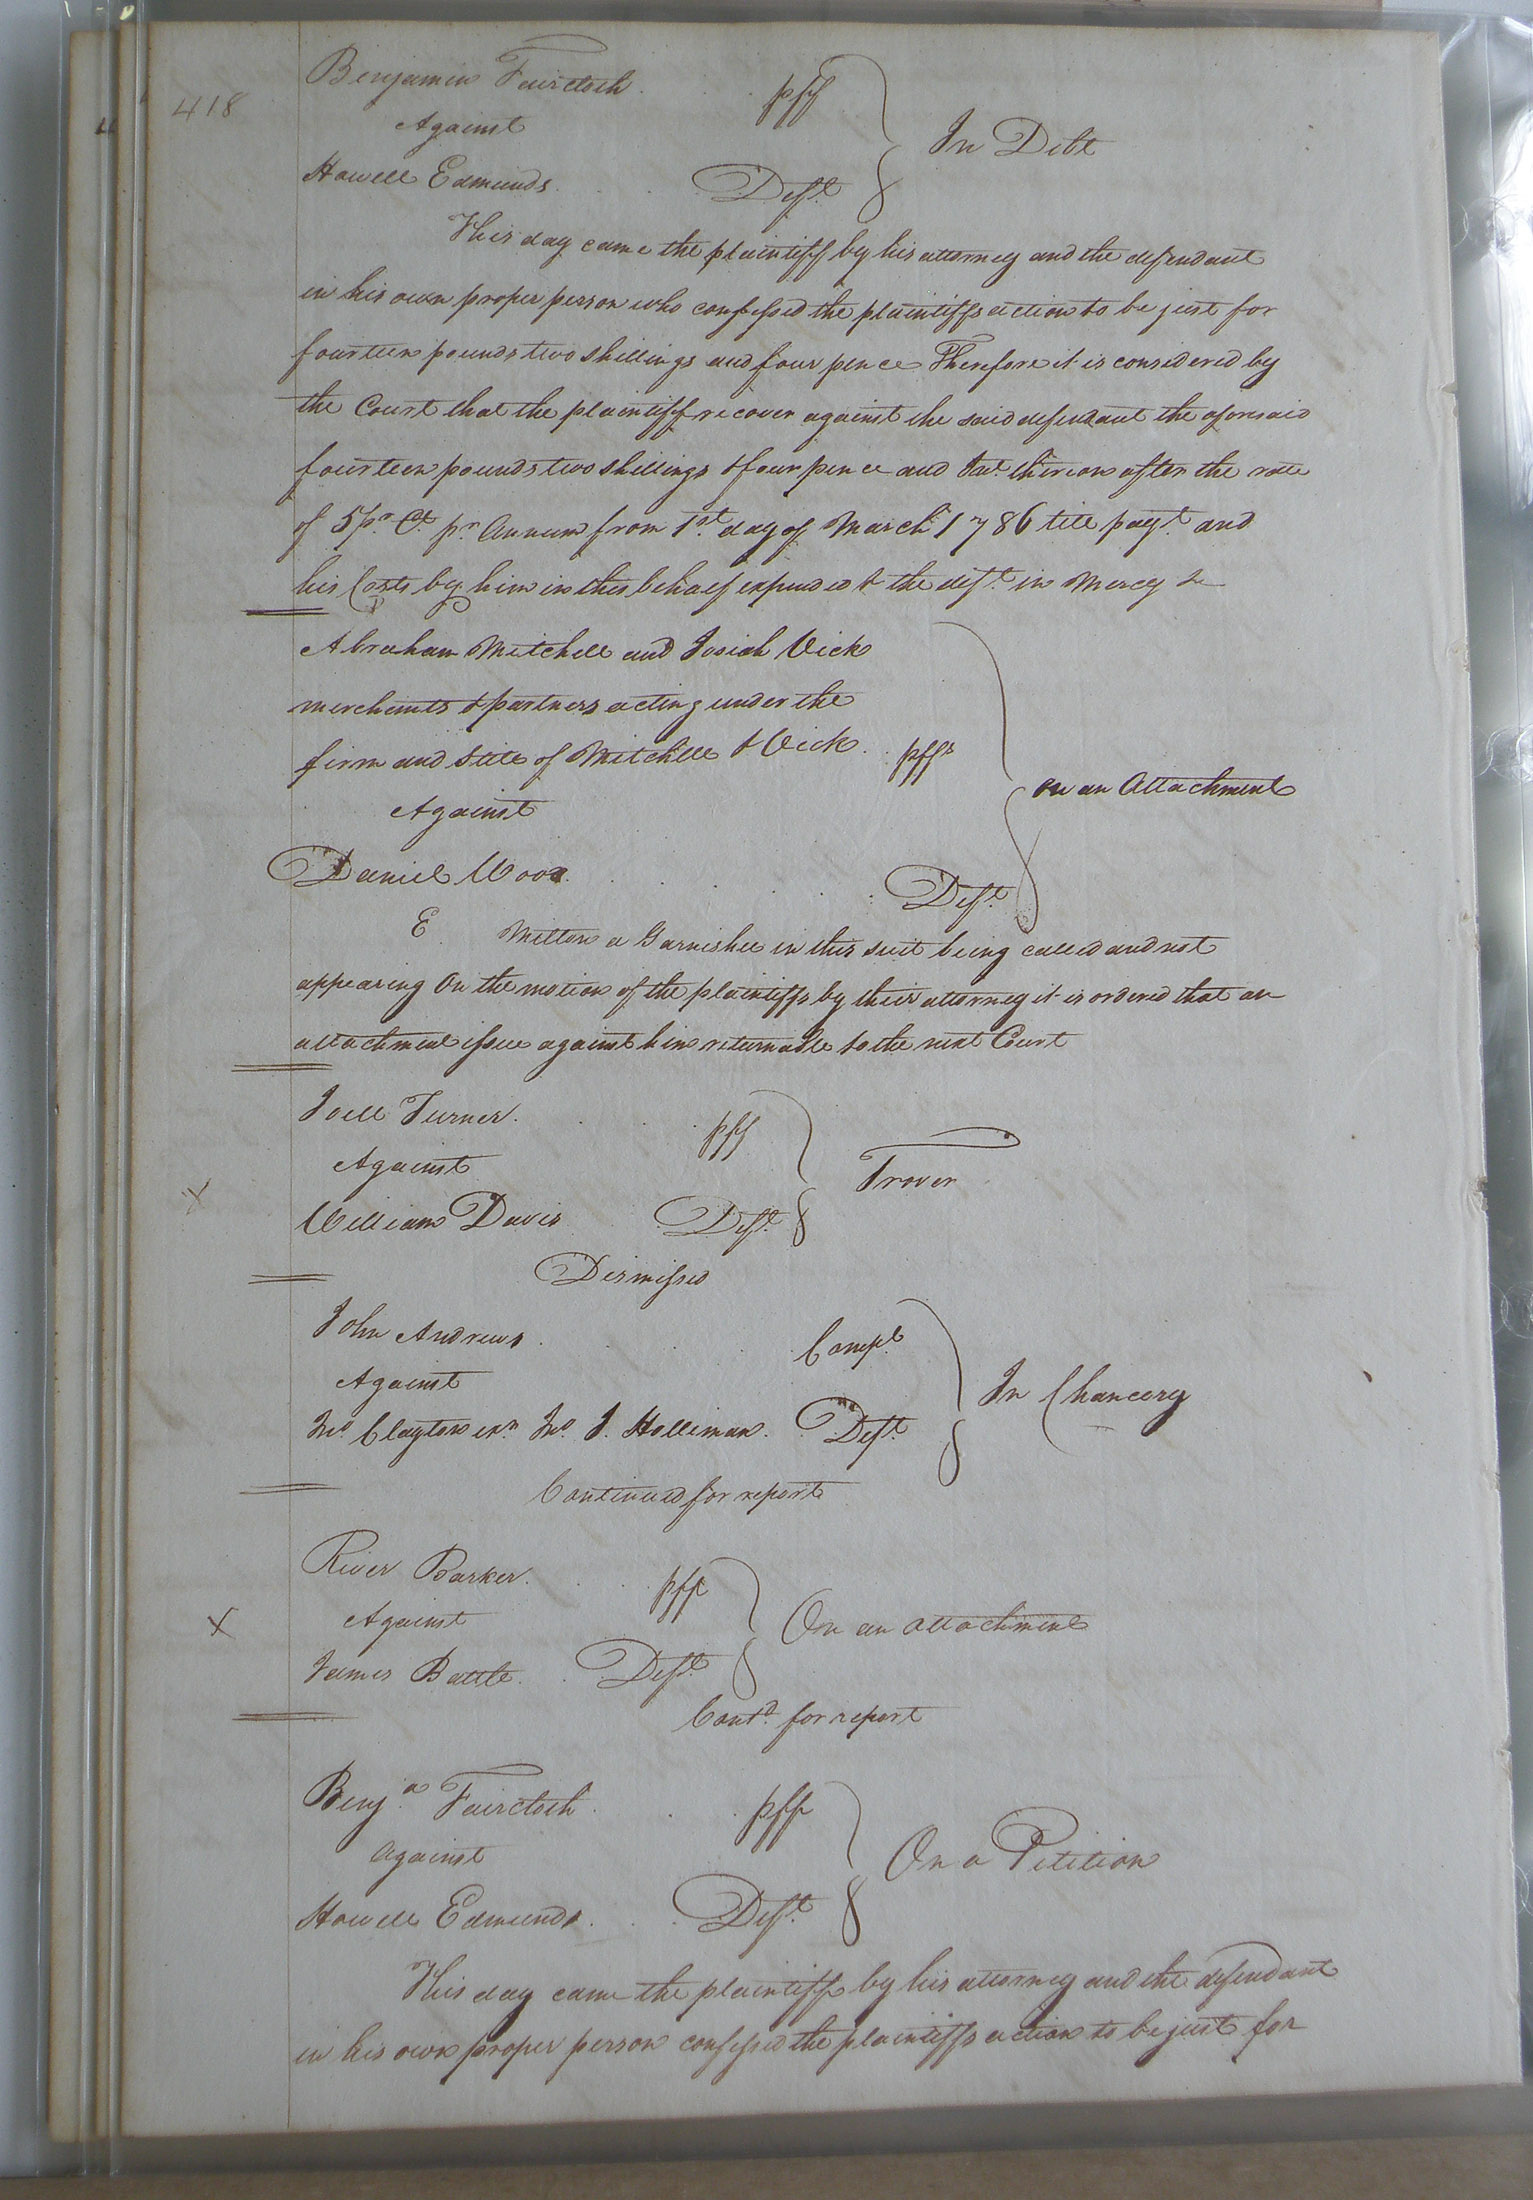 418
Benjamin Faircloth . . plff
Against
In Debt
Howell Edmunds . . Deft.
This day came the plaintiff by his attorney and the defendant
in his own proper person who confessed the plaintiffs action to be just for
fourteen pounds two shillings and four pence Therefore it is considered by
the Court that the plaintiff recover against the said defendant the aforesaid
fourteen pounds two shillings & four pence and Int. thereon after the rate
of 5 pr. Ct. pr. Annum from 1st. day of March 1786 till payt. and
his Costs by him in this behalf expended & the deft. in Mercy &
Abraham Mitchell and Josiah Vick
merchants & partners acting under the
firm and Stile of Mitchell & Vick . plffs
on an Attachment
Against
Daniel Wood . . . . Deft.
E Milton a Garnishee in this suit being called and not
appearing On the motion of the plaintiffs by their attorney it is ordered that an
attachment issue against him returnable to the next Court
Joell Turner . . . plff
Against
Trover
X
William Davis . Deft.
Dismissed
John Andrews . . . . Complt.
Against
In Chancery
Jno. Clayton exr. Jno. J. Holliman . Deft.
Continued for report
River Barker . . . plff
X
Against
On an attachment
James Battle . . Deft.
Contd. for report
Benja. Faircloth . . . plff
against
On a Petition
Howell Edmunds . . . Deft.
This day came the plaintiff by his attorney and the defendant
in his own proper person confessed the plaintiffs action to be just for